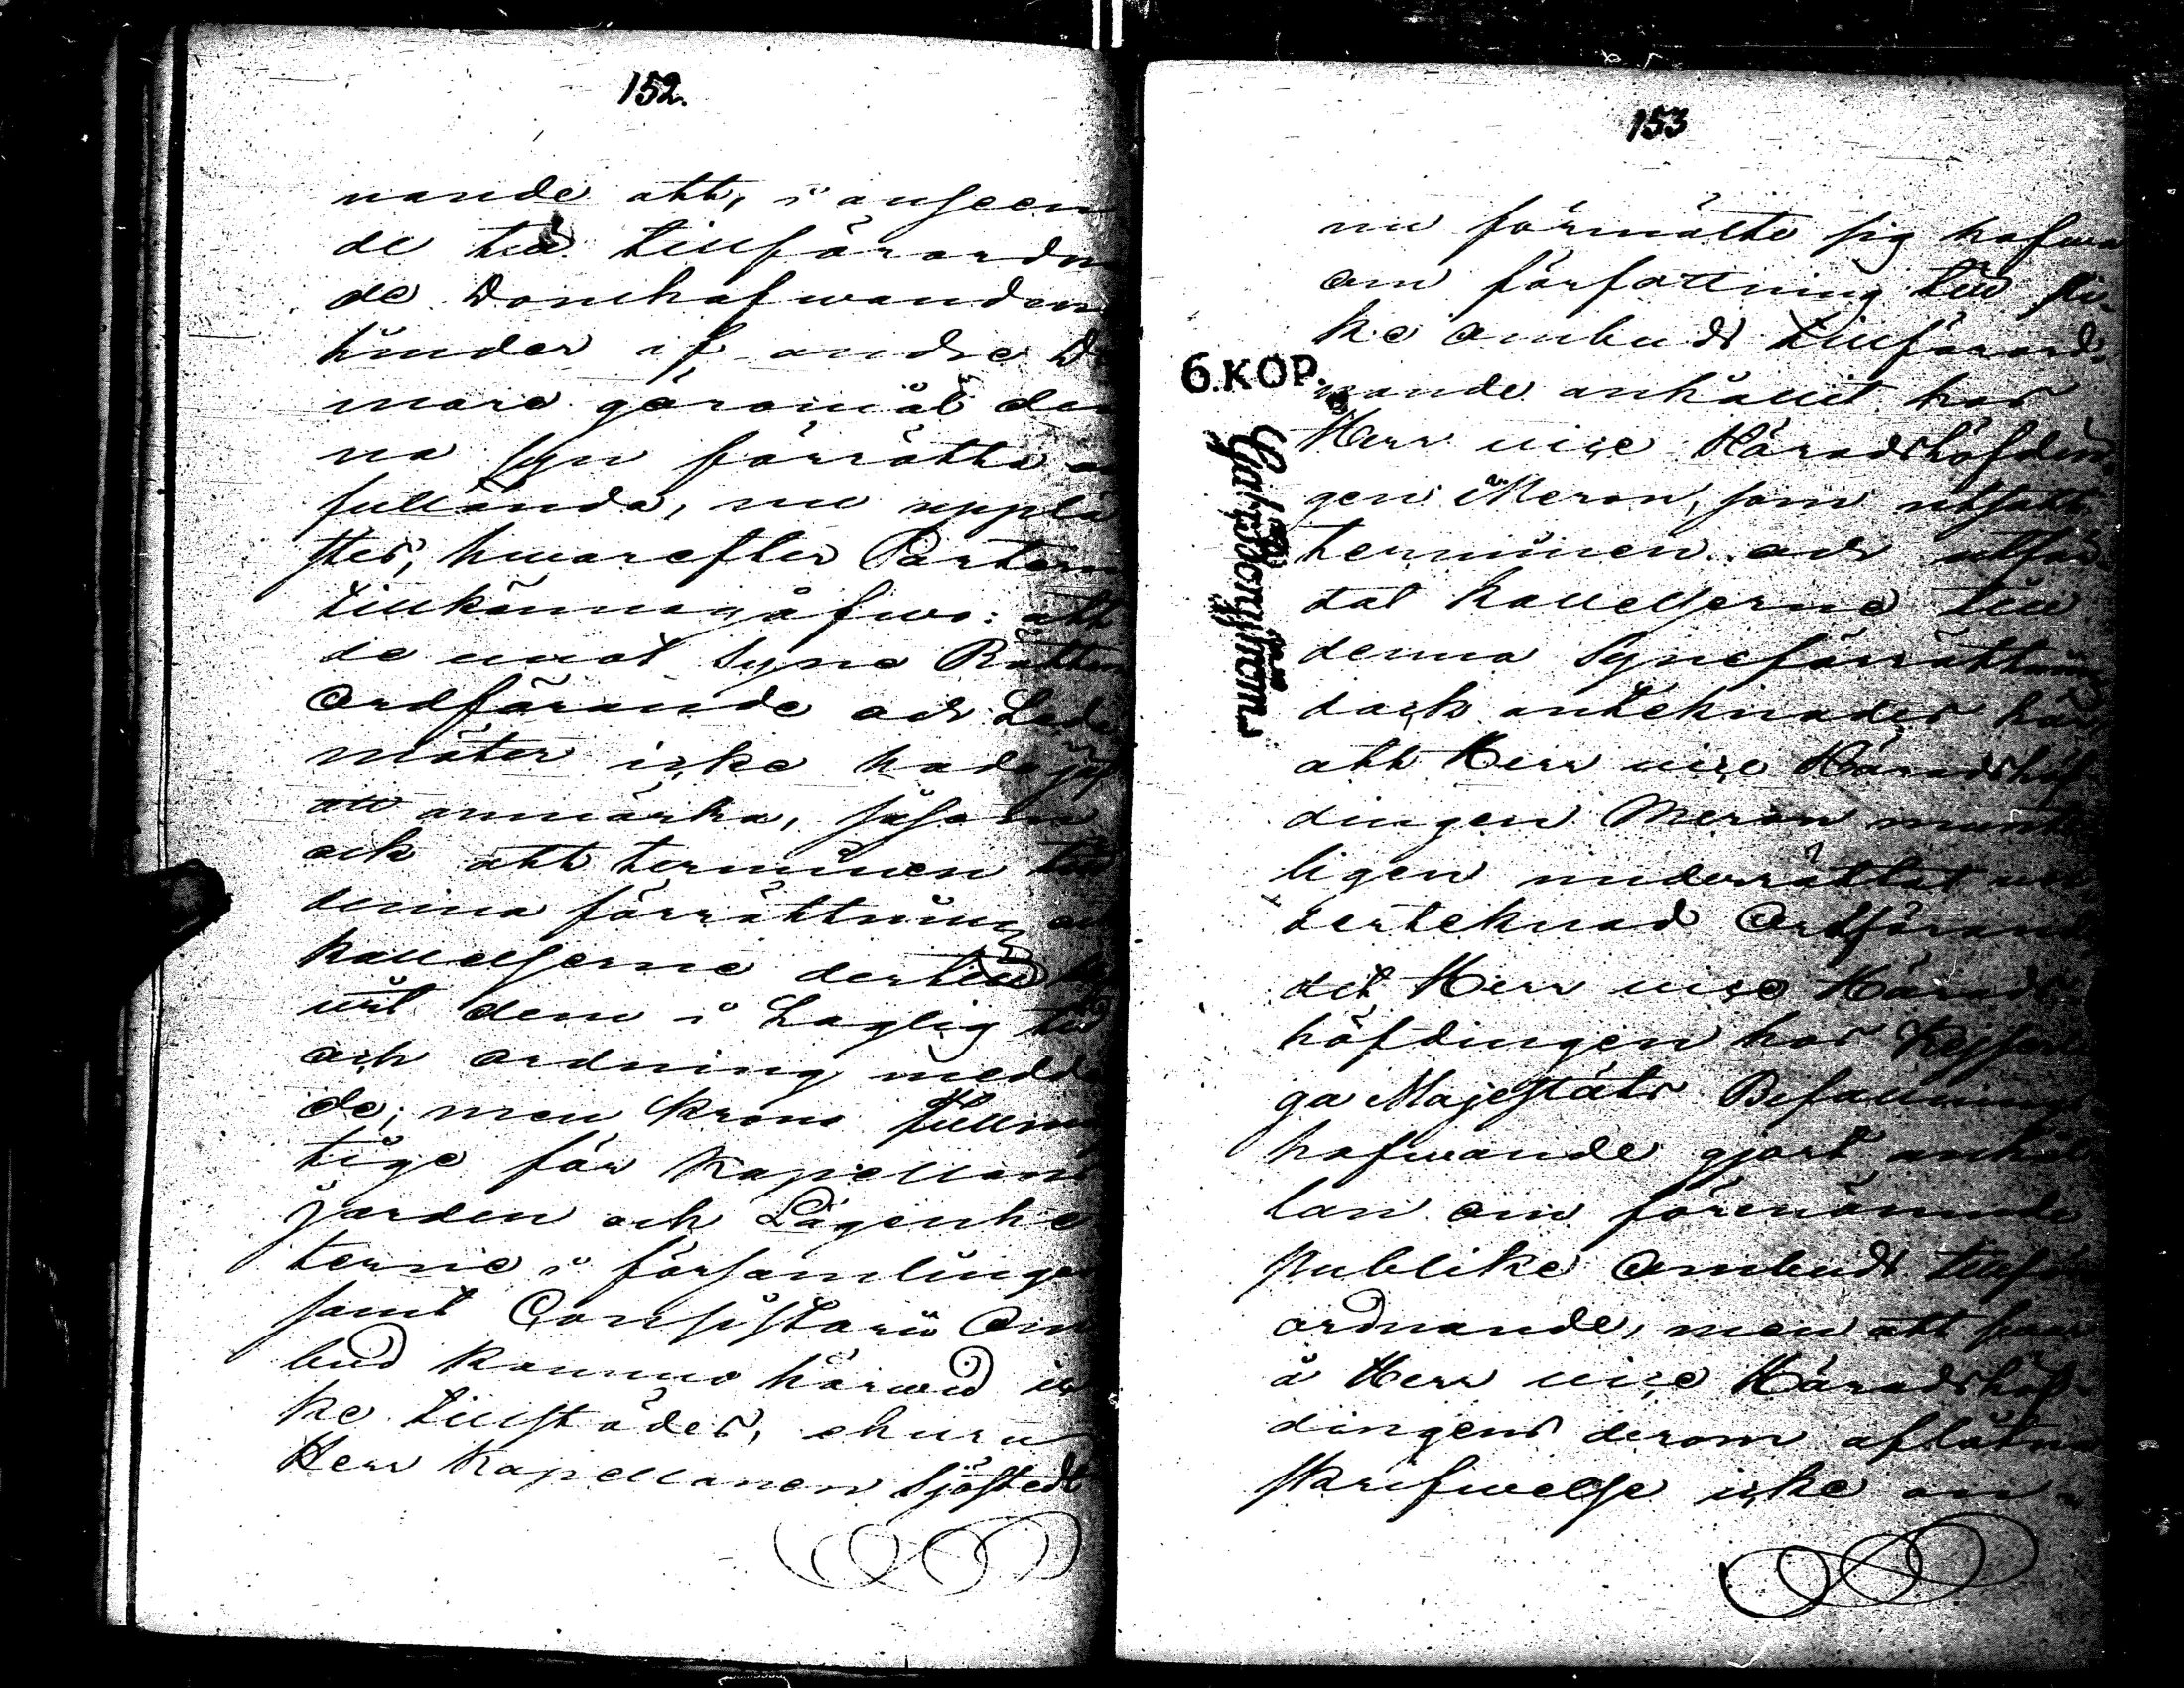 152.
nande att, i anseen
de till tillförordna
de Domhafwanden
hinder af andre Do
mare göromål den
na Syn förrätta
fullända, nu upplä
stes, hwarefter Parterne
tillkännagåfwo: att
de emot Syne Rättens
Ordförande och Lede
möter icke hade jäf
att anmärka, såsom
ock att terminen till
denna förrättning
kallelserne dertill
wist dem i Laglig tid
och ordning medde
de; men Krono fullmä
tige för Kapellans
jorden och Lägenhe
terne i församlingen
samt Consistorii Om
bud kommo härwid ic
ke tillstädes, ehuru
Herr Kapellanen Sjöstedt
153
nu förmälte sig hafwa
om författning till sli
ke ombuds tillförord
nande anhållit hos
Herr vice Häradshöfdin
gen Meron, som utsatt
terminen och utfär
dat kallelserne till
denna Syneförrättning
dock antecknades här
att Herr vice Häradshöf
dingen Meron munt
ligen underrättat un
dertecknad Ordförande
det Herr vice Härads
höfdingen hos Kejserli
ga Majestäts Befallnings
hafwande gjort anhål
lan om förenämnde
publike Ombuds tillför
ordnande, men att swar
å Herr vice Häradshöf
dingens derom aflåtna
skrifwelse icke an
6.KOP.